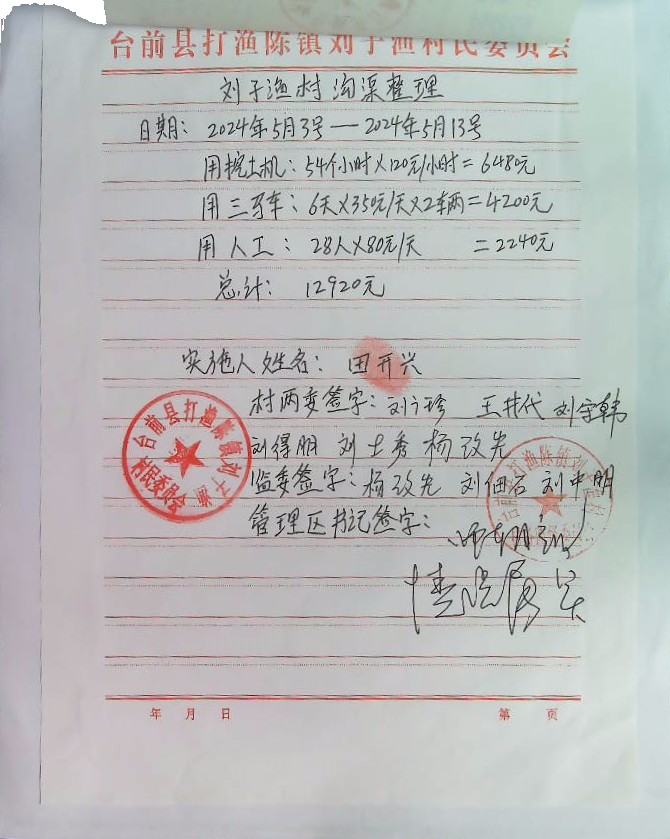 台前县打渔陈镇刘子渔村民委员会
刘子渔村沟渠整理
日期：2024年5月3号—2024年5月13号
用挖土机：54个小时×120元/小时=6480元
用三马车：6天×350元/天×2辆=4200元
用人工：28人×80元/天 =2240元
总计：12920元
实施人姓名：田开兴
村两委签字：刘广珍 王井代 刘宇韩
刘得朋 刘士秀 杨改先
监委签字：杨改先 刘佃石 刘中明
管理区书记签字：
台前县打渔陈镇刘子渔
村民委员会
年 月 日 第 页